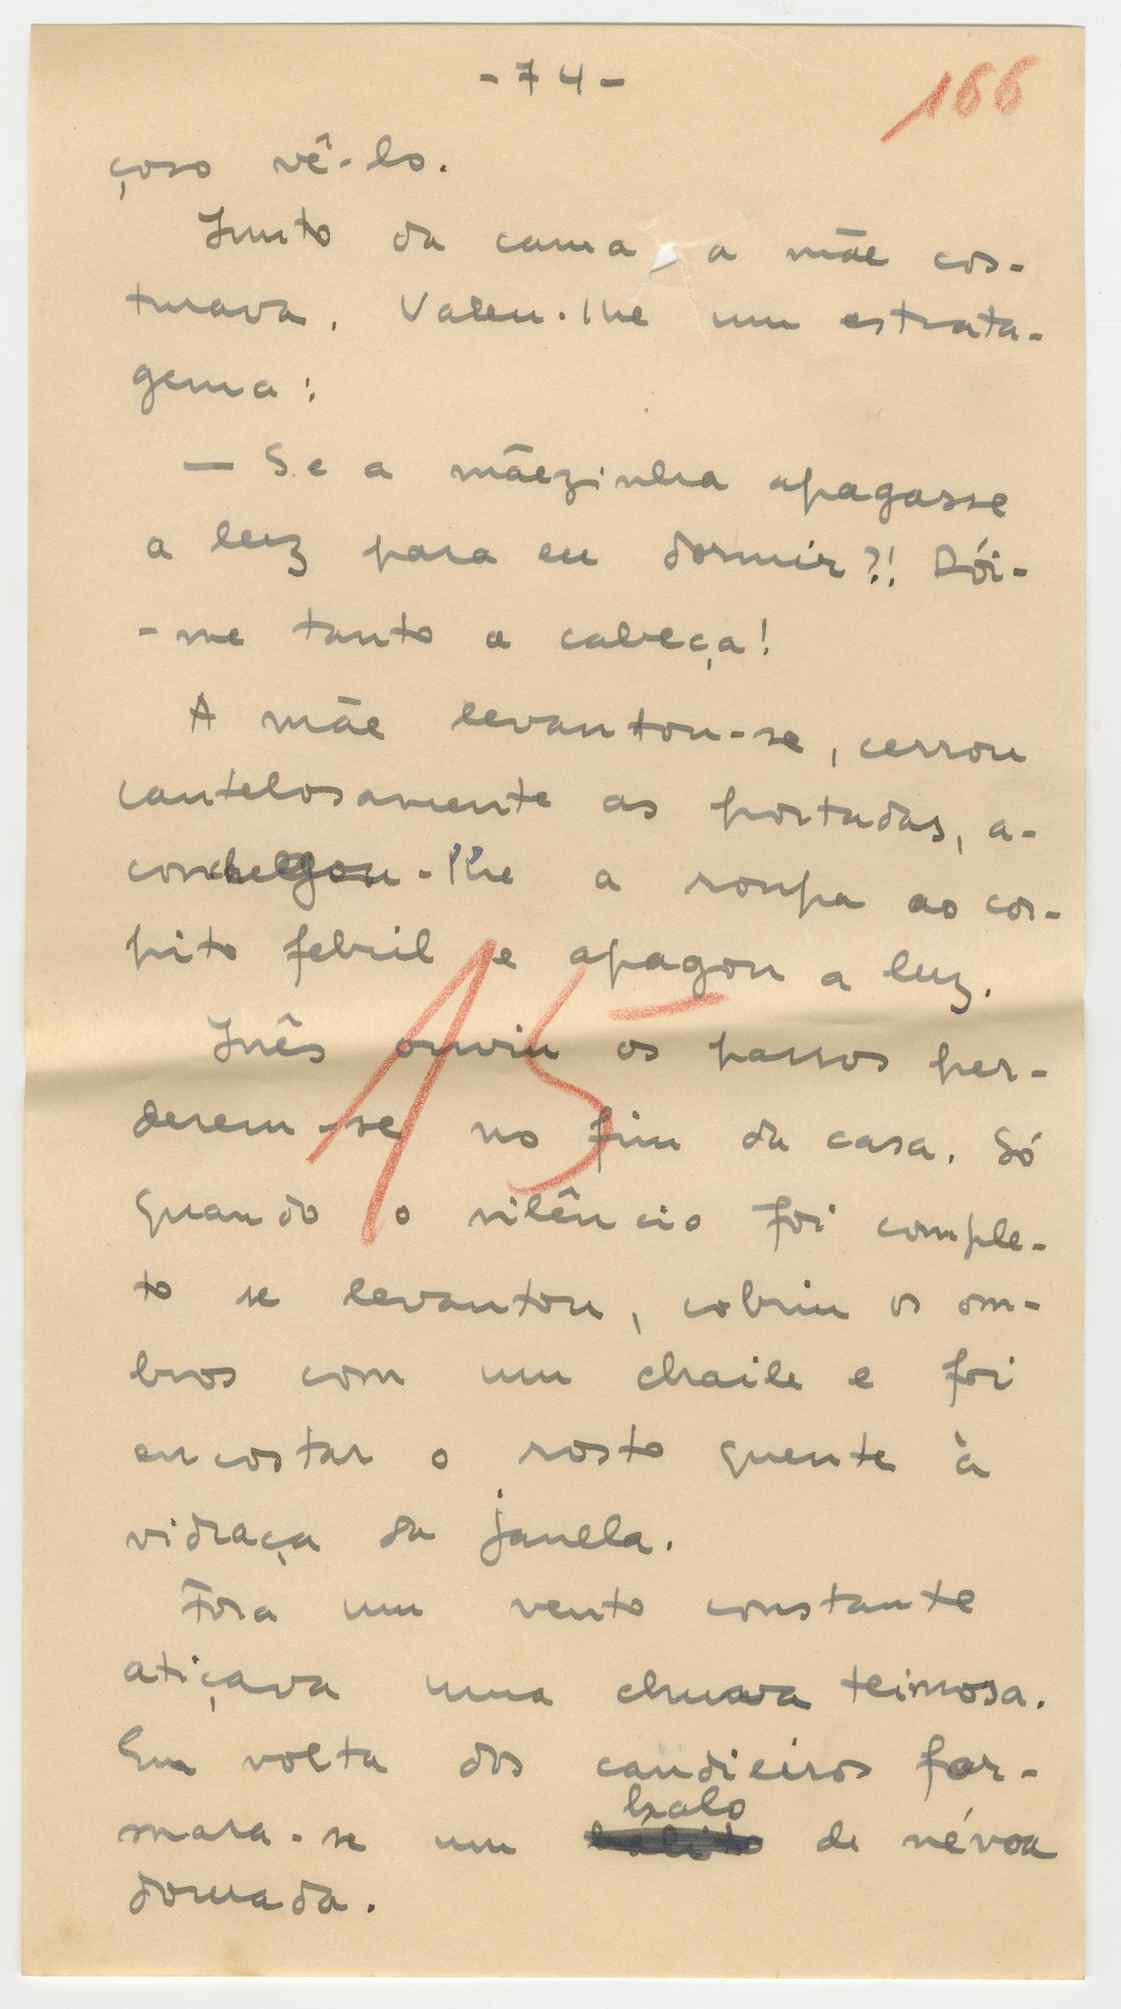 -74-
166
çoso vê-lo.
Junto da cama, a mãe cos-
turava. Valeu-lhe um estrata-
gema:
— Se a mãezinha apagasse
a luz para eu dormir?! Dói-
-me tanto a cabeça!
A mãe levantou-se, cerrou
cautelosamente as portadas, a-
conchegou-lhe a roupa ao cor-
pito febril e apagou a luz.
15
Inês ouviu os passos per-
derem-se no fim da casa. Só
quando o silêncio foi comple-
to se levantou, cobriu os om-
bros com um chaile e foi
encostar o rosto quente à
vidraça da janela.
Fora um vento constante
atiçava uma chuva teimosa.
Em volta dos candieiros for-
halo
mara-se um hálito de névoa
dourada.